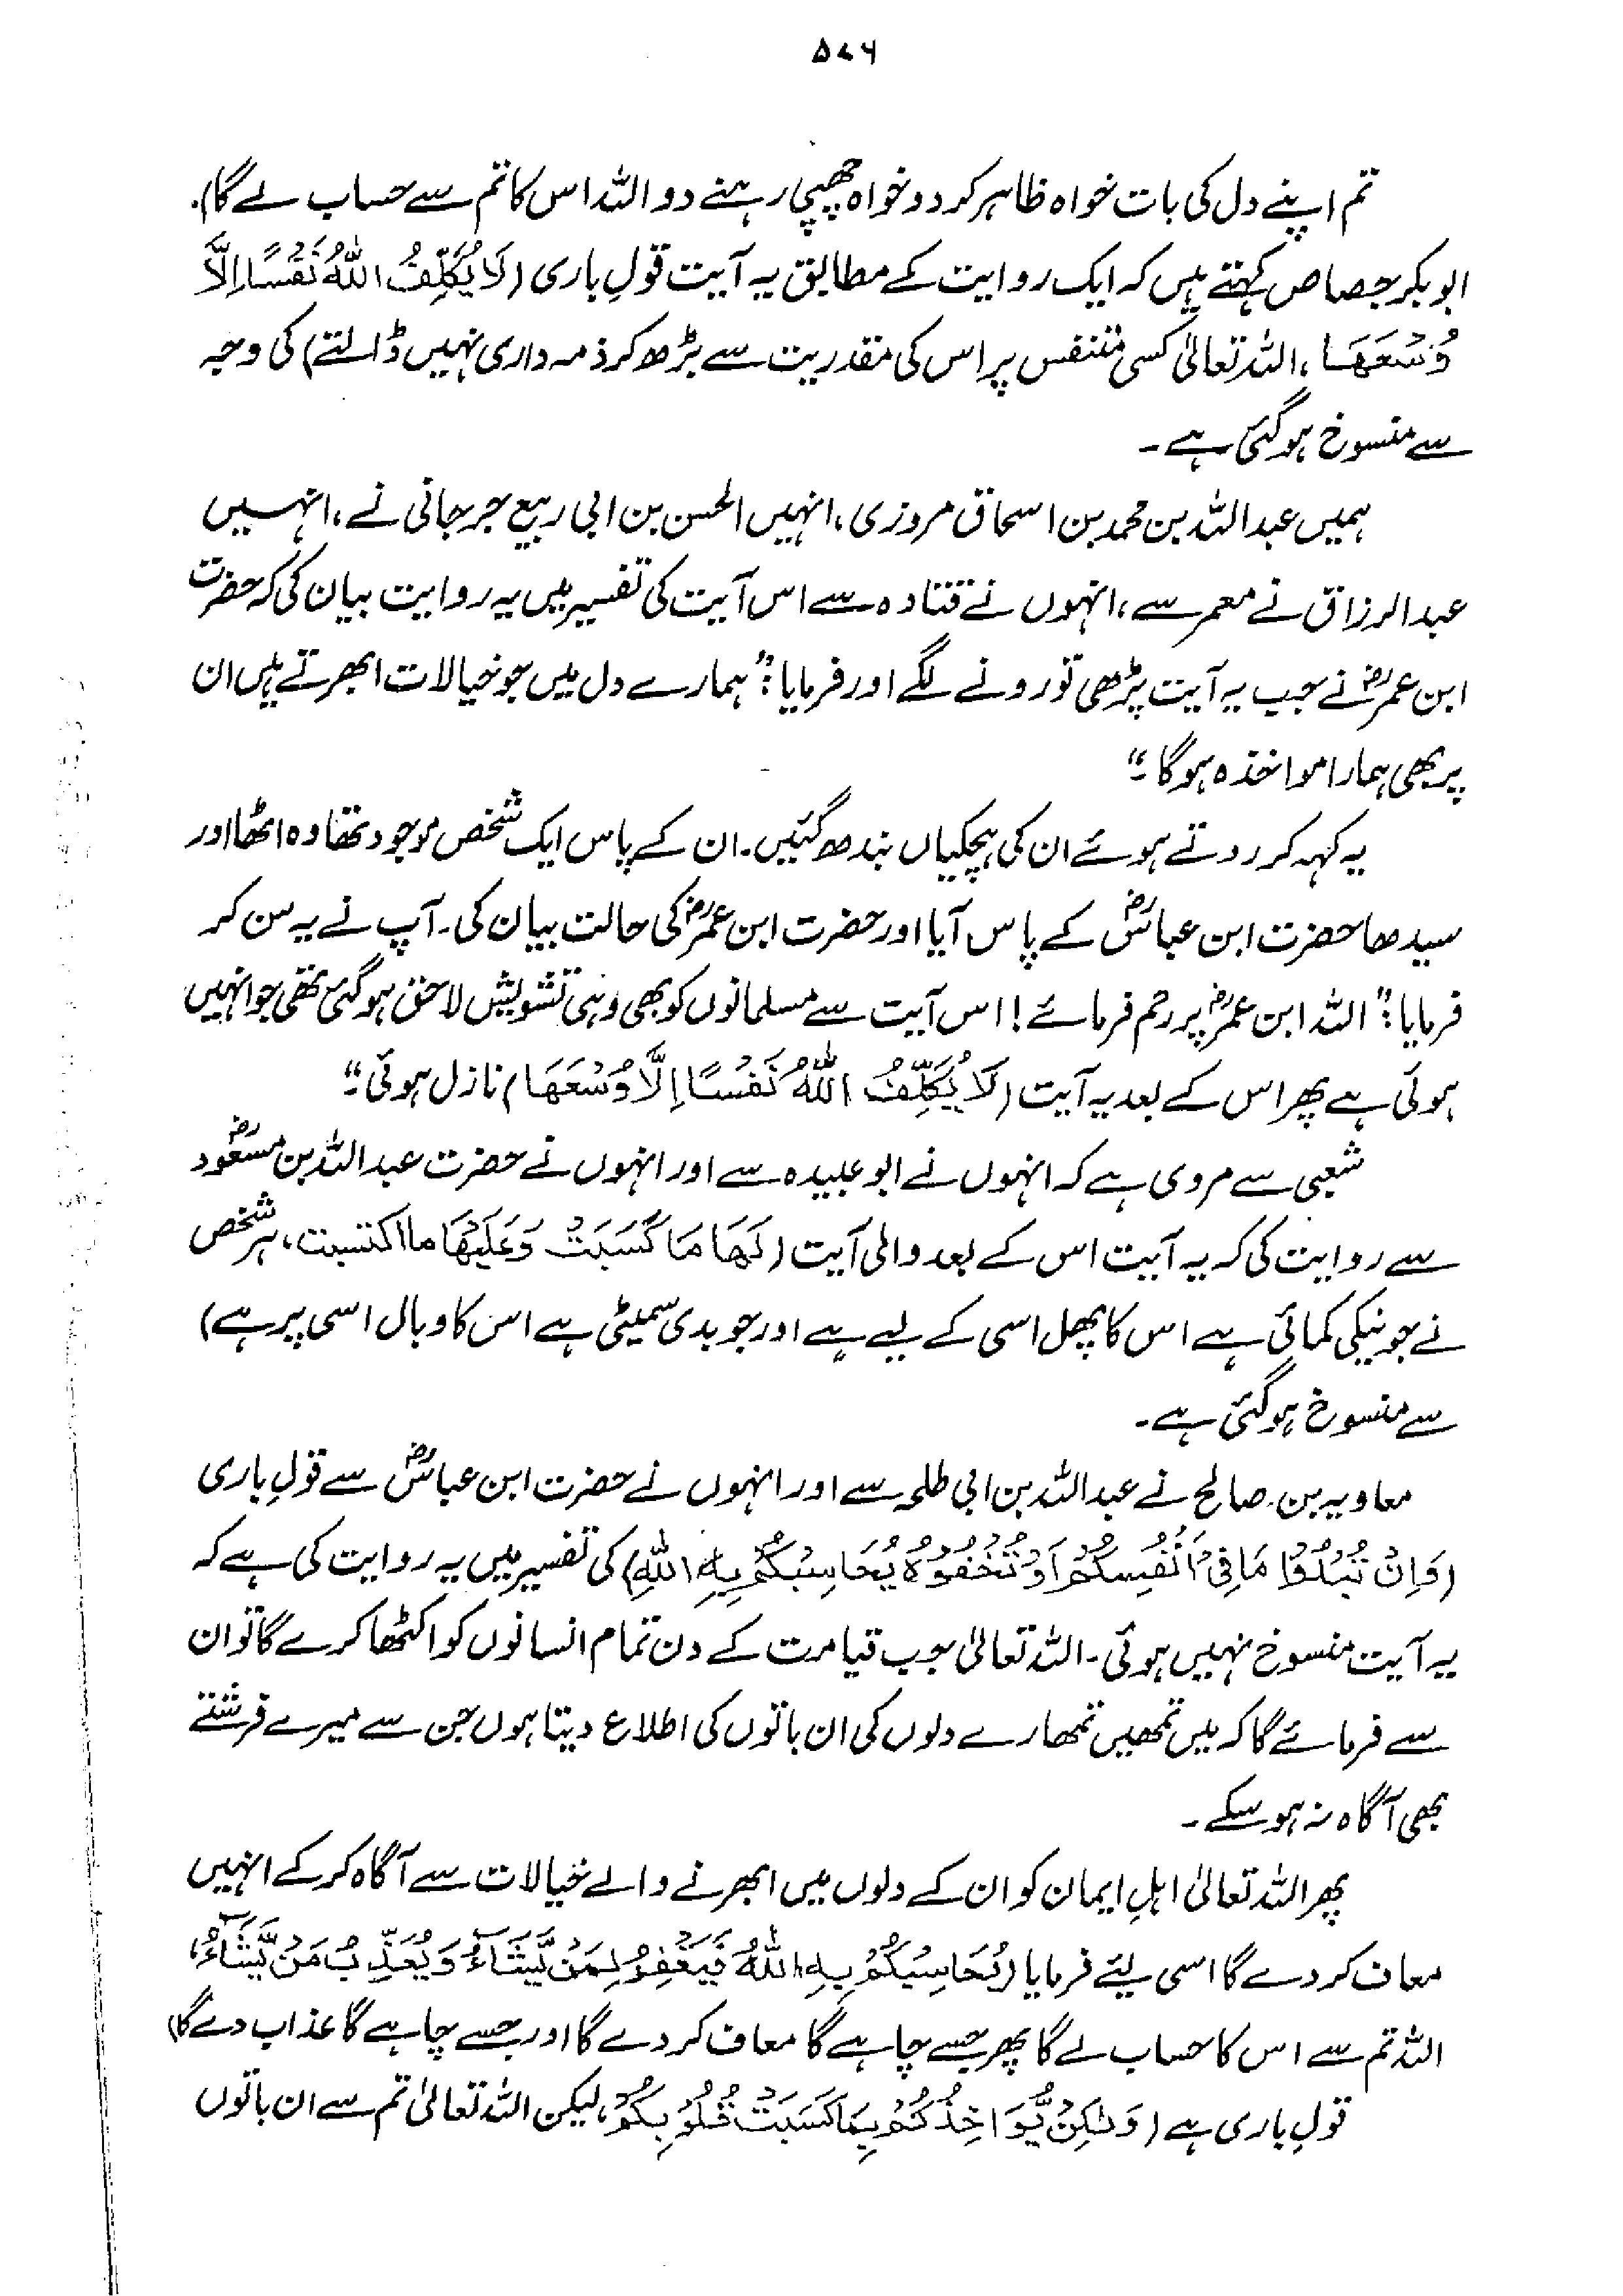 ۵۷۶
تم اپنے دل کی بات خواہ ظاہر کر دو خواہ چھپی رہنے دو اللہ اس کا تم سے حساب لے گا)۔
ابوبکر جصاص کہتے ہیں کہ ایک روایت کے مطابق یہ آیت قولِ باری (لَا يُكَلِّفُ اللّٰهُ نَفْسًا اِلَّا
وُسْعَهَا، اللہ تعالیٰ کسی متنفس پر اس کی مقدریت سے بڑھ کر ذمہ داری نہیں ڈالتے) کی وجہ
سے منسوخ ہو گئی ہے۔
ہمیں عبداللہ بن محمد بن اسحاق مروزی، انہیں الحسن بن ابی ربیع جرجانی نے، انہیں
عبدالرزاق نے معمر سے، انہوں نے قتادہ سے اس آیت کی تفسیر میں یہ روایت بیان کی کہ حضرت
ابن عمرؓ نے جب یہ آیت پڑھی تو رونے لگے اور فرمایا: "ہمارے دل میں جو خیالات ابھرتے ہیں ان
پر بھی ہمارا مواخذہ ہو گا۔"
یہ کہہ کر روتے ہوئے ان کی ہچکیاں بندھ گئیں۔ ان کے پاس ایک شخص موجود تھا وہ اٹھا اور
سیدھا حضرت ابن عباسؓ کے پاس آیا اور حضرت ابن عمرؓ کی حالت بیان کی۔ آپ نے یہ سن کر
فرمایا: "اللہ ابن عمرؓ پر رحم فرمائے! اس آیت سے مسلمانوں کو بھی وہی تشویش لاحق ہو گئی تھی جو انہیں
ہوئی ہے پھر اس کے بعد یہ آیت (لَا يُكَلِّفُ اللّٰهُ نَفْسًا اِلَّا وُسْعَهَا) نازل ہوئی۔"
شعبی سے مروی ہے کہ انہوں نے ابو عبیدہ سے اور انہوں نے حضرت عبداللہ بن مسعودؓ
سے روایت کی کہ یہ آیت اس کے بعد والی آیت (لَهَا مَا كَسَبَتْ وَعَلَيْهَا ما اكتسبت، ہر شخص
نے جو نیکی کمائی ہے اس کا پھل اسی کے لیے ہے اور جو بدی سمیٹی ہے اس کا وبال اسی پر ہے)
سے منسوخ ہو گئی ہے۔
معاویہ بن صالح نے عبداللہ بن ابی طلحہ سے اور انہوں نے حضرت ابن عباسؓ سے قولِ باری
(وَاِنْ تُبْدُوْا مَا فِيْ اَنْفُسِكُمْ اَوْ تُخْفُوْهُ يُحَاسِبْكُمْ بِهِ اللّٰهِ) کی تفسیر میں یہ روایت کی ہے کہ
یہ آیت منسوخ نہیں ہوئی۔ اللہ تعالیٰ جب قیامت کے دن تمام انسانوں کو اکٹھا کرے گا تو ان
سے فرمائے گا کہ میں تمھیں تمھارے دلوں کی ان باتوں کی اطلاع دیتا ہوں جن سے میرے فرشتے
بھی آگاہ نہ ہو سکے۔
پھر اللہ تعالیٰ اہلِ ایمان کو ان کے دلوں میں ابھرنے والے خیالات سے آگاہ کر کے انہیں
معاف کر دے گا اسی لئے فرمایا (يُحَاسِبْكُمْ بِهِ اللّٰهُ فَيَغْفِرُ لِمَنْ يَّشَآءُ وَيُعَذِّبُ مَنْ يَّشَآءُ،
اللہ تم سے اس کا حساب لے گا پھر جسے چاہے گا معاف کر دے گا اور جسے چاہے گا عذاب دے گا)
قولِ باری ہے (وَلٰكِنْ يُّؤَاخِذُكُمْ بِمَا كَسَبَتْ قُلُوْبِكُمْ، لیکن اللہ تعالیٰ تم سے ان باتوں